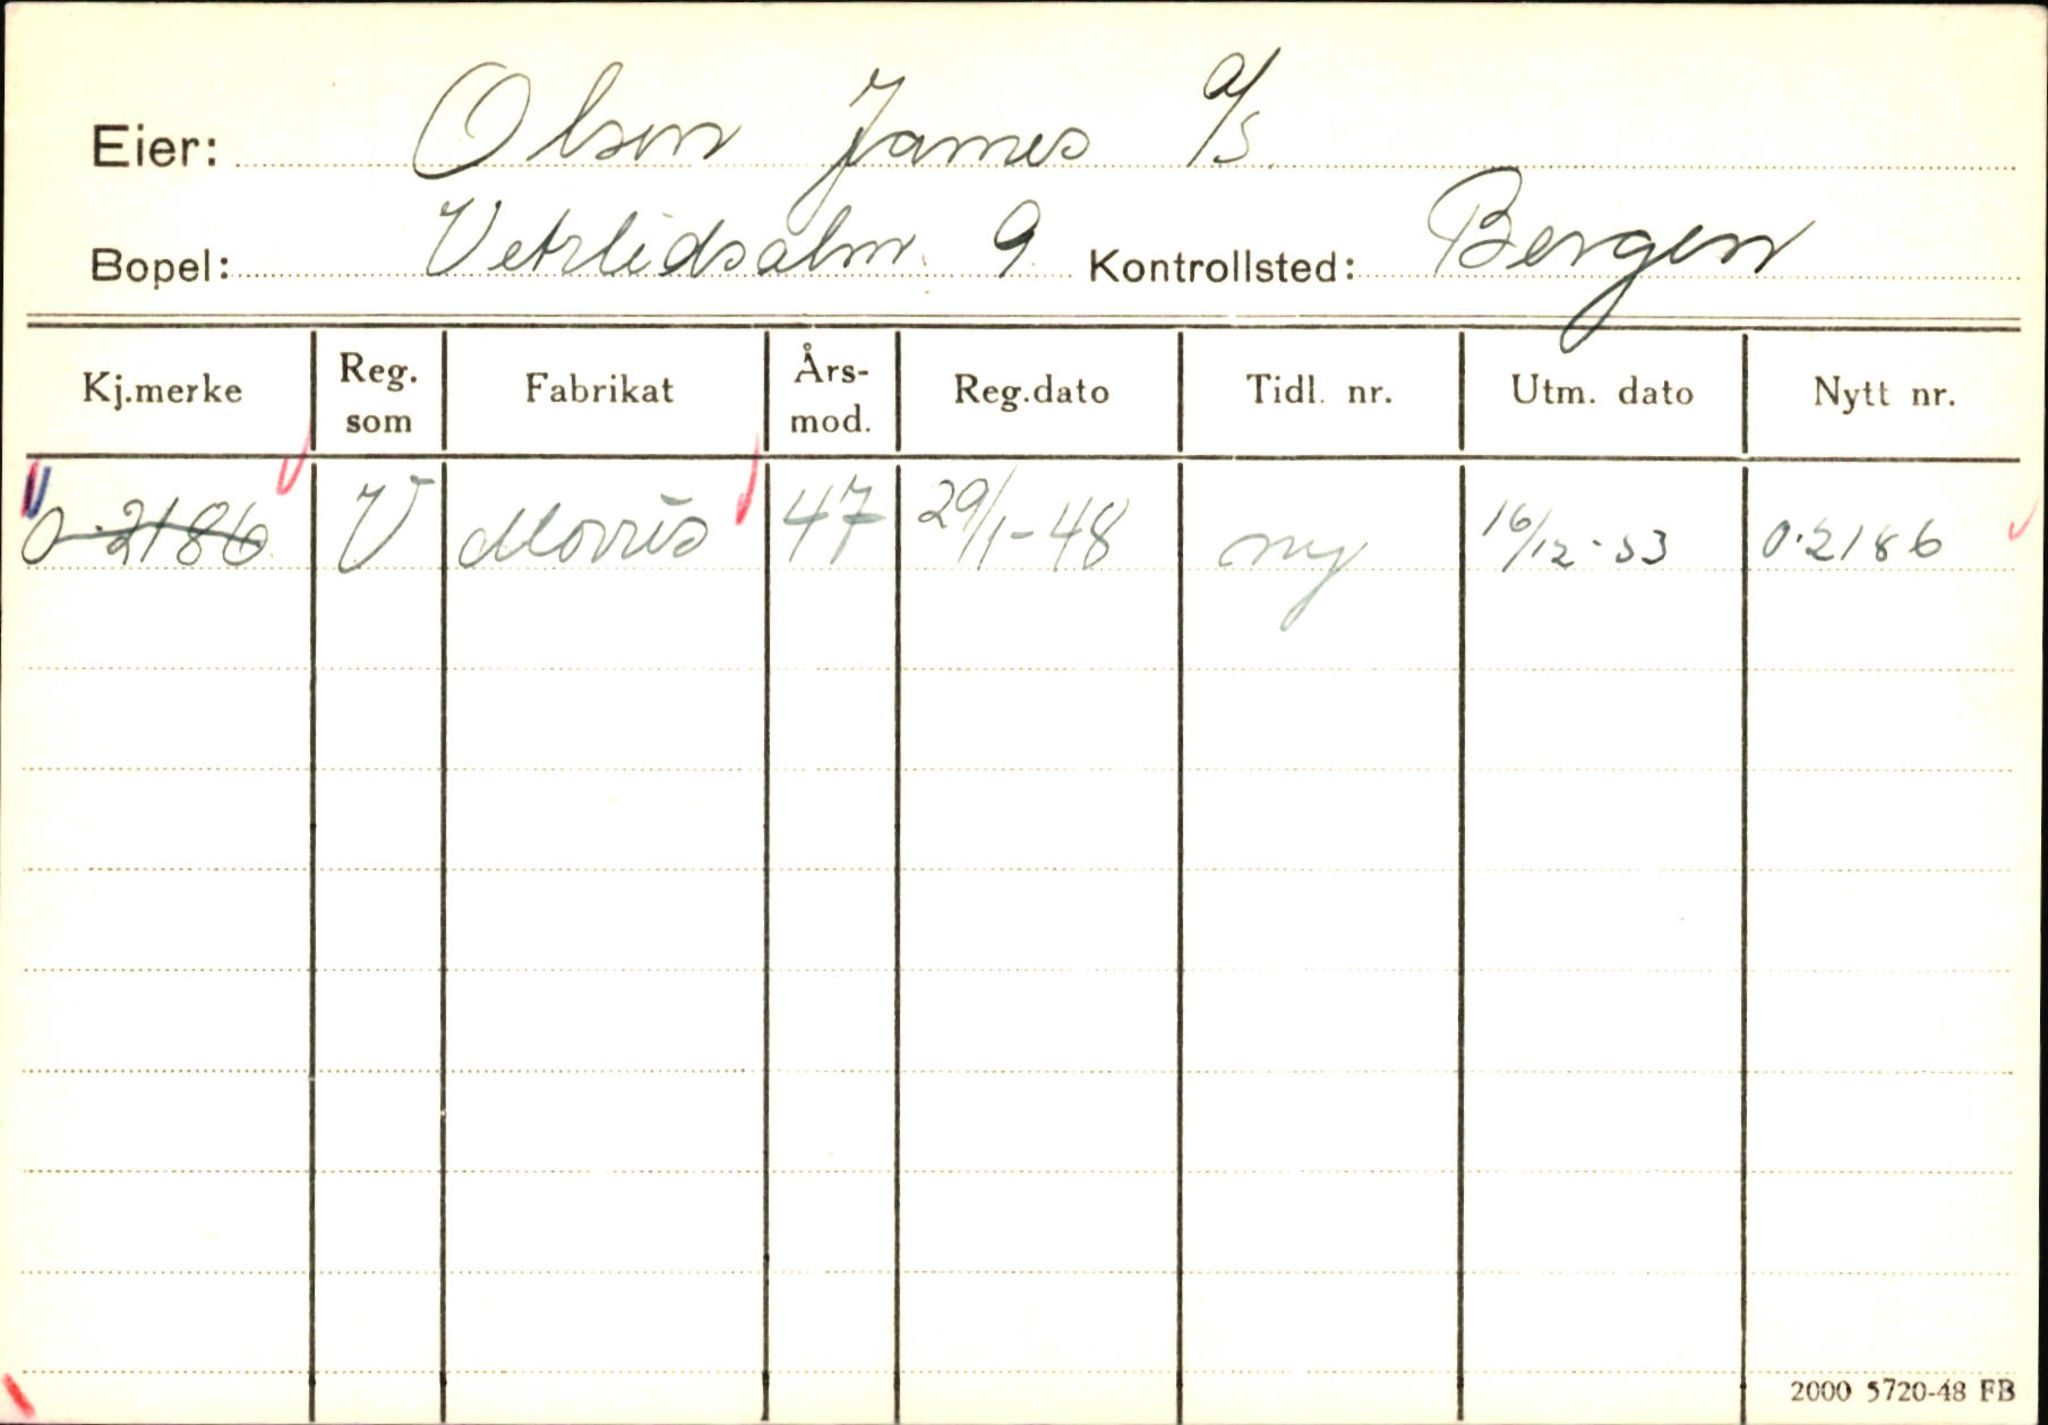 Eier: Olsen James A/S.
Bopel: Vetrlidsalm. 9 Kontrollsted: Bergen
Kj.merke Reg. som Fabrikat Års- mod. Reg.dato Tidl. nr. Utm. dato Nytt nr.
O-2186 V Morris 47 29/1-48 ny 16/12-53 O-2186
2000 5720-48 FB